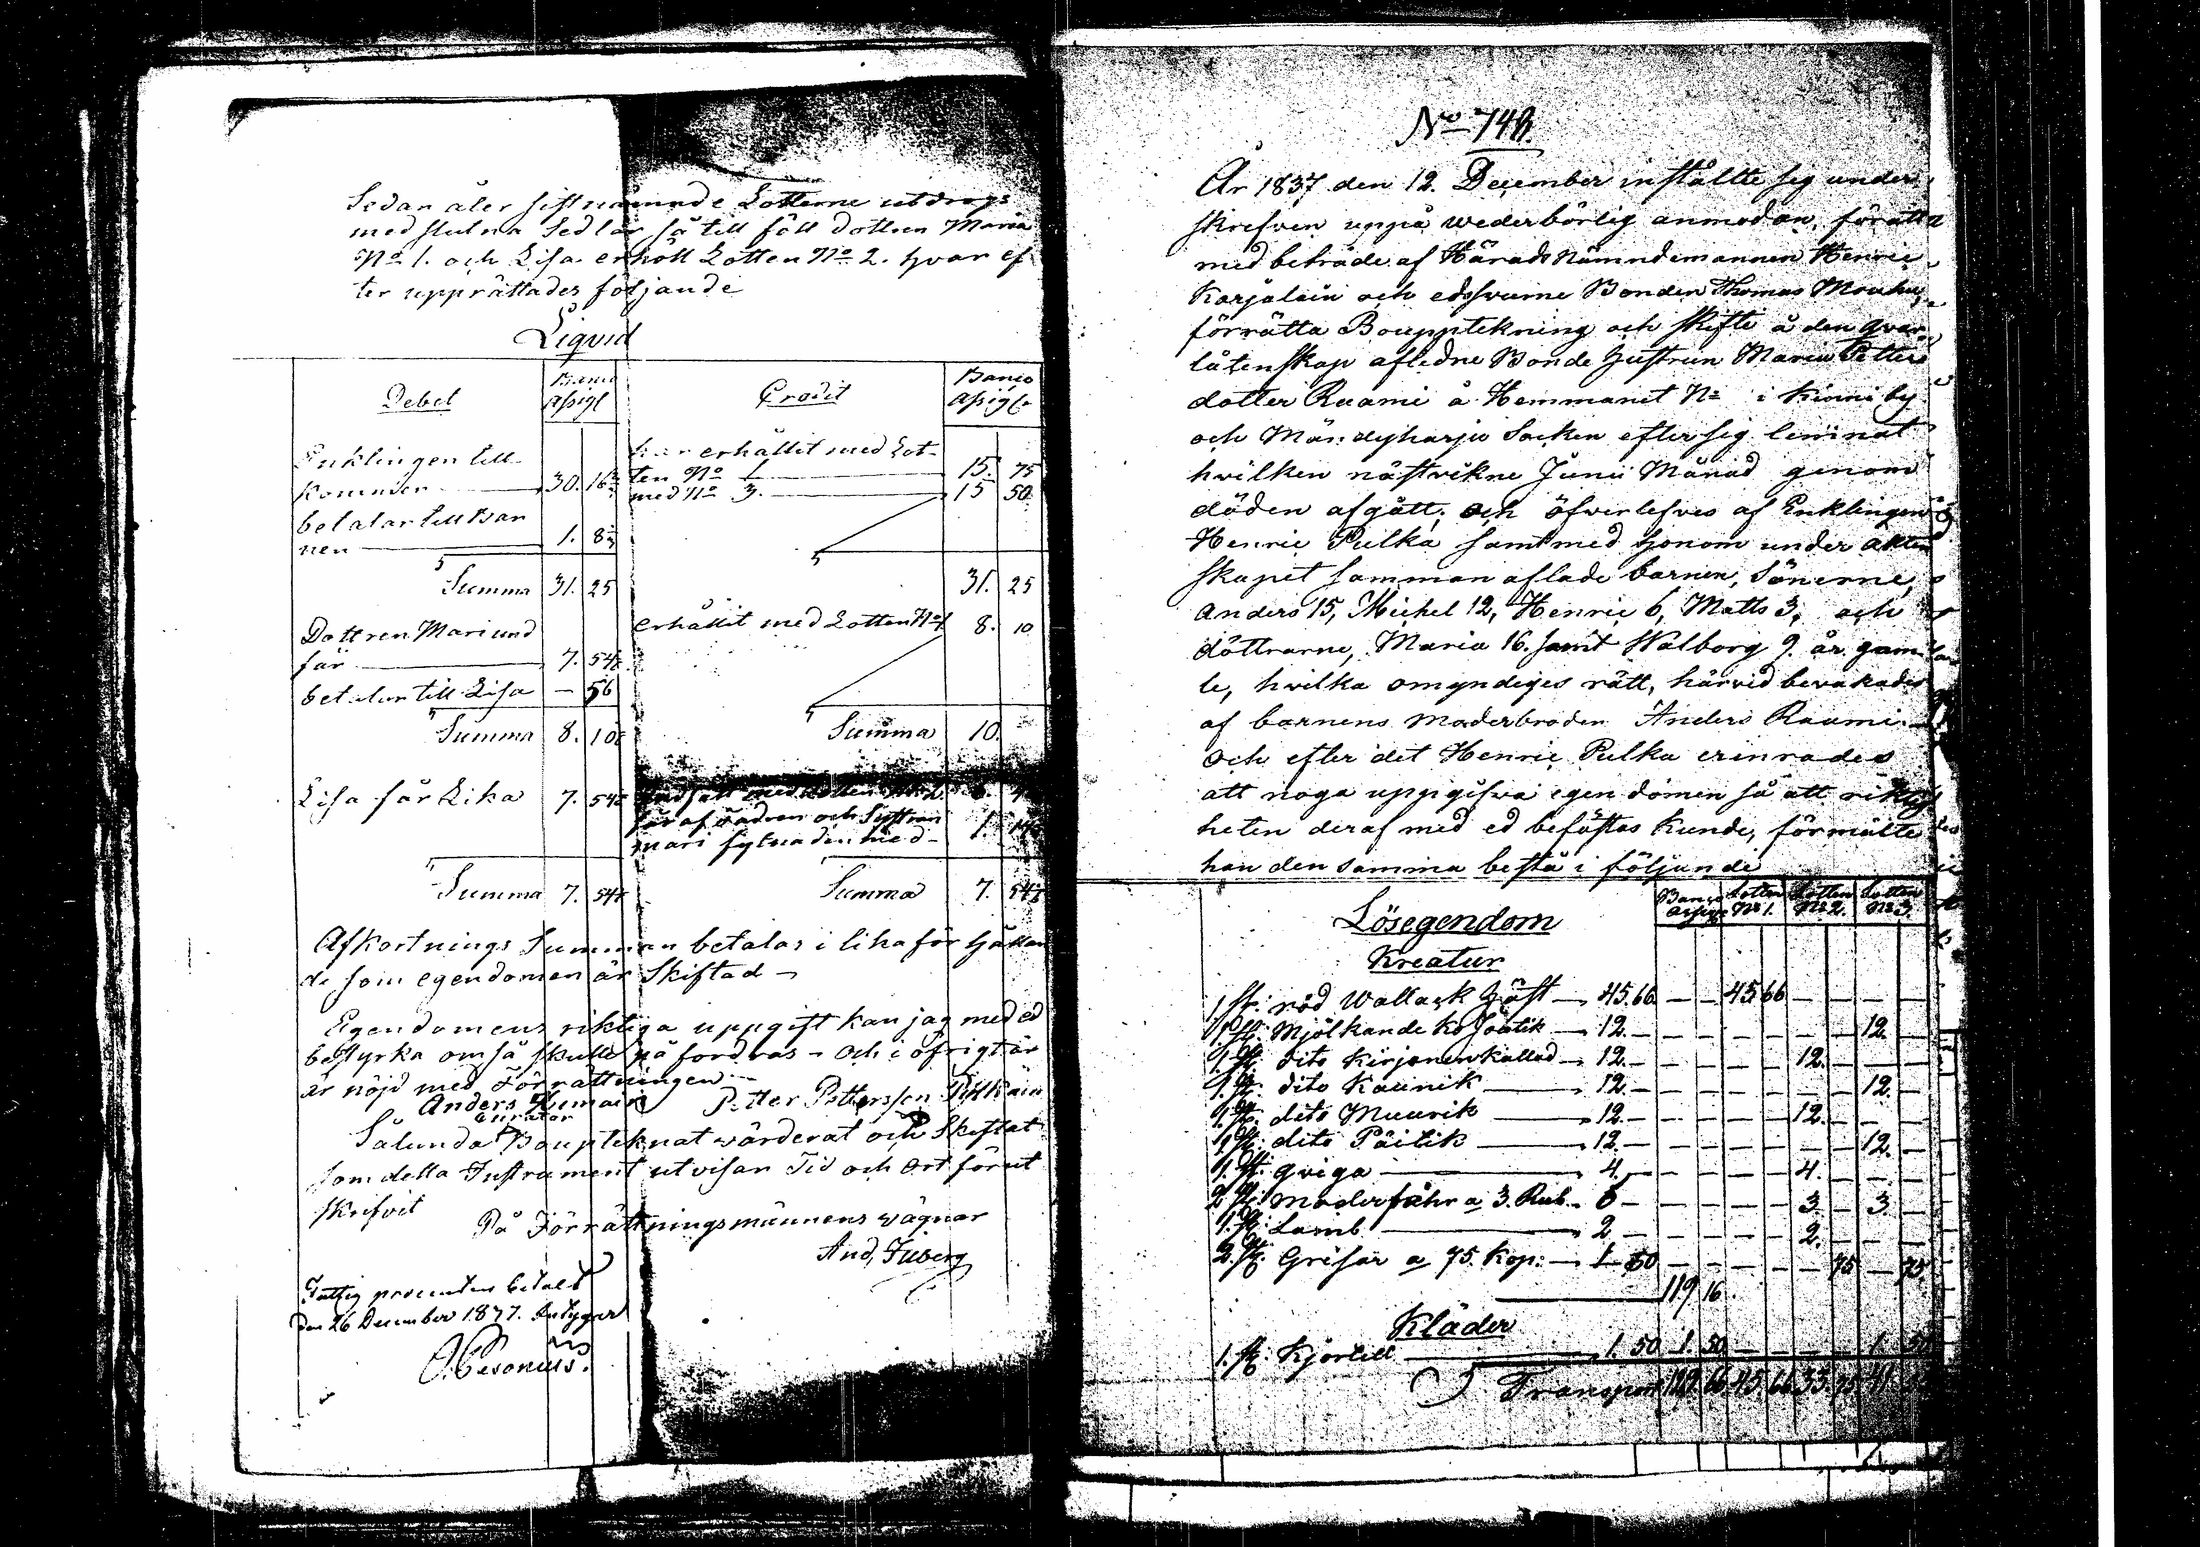 Sedan åter sistnämnde Lotterne utdrogs
med slutna Sedlar så till föll dottren Maria
No 1. och Lisa erhöll Lotten No 2. hvar ef
ter upprättades följande
Liqvid
Debet Banco Assigt Credit Banco Assigt
Enklingen till
kommer 30. 16
har erhållit med Lot-
ten No 1 15. 75
med No 3. 15 50
betalar till Bar
nen 1. 8
Summa 31. 25 31. 25
Dottren Maria und
får 7. 54
erhållit med Lotten No 1 8. 10
betalar till Lisa — 56
Summa 8. 10 Summa 10.
Lisa får Lika 7. 54
får af Fadren och Systran
mari fylnaden med 1.
Summa 7. 54 Summa 7. 54
Afkortnings Summan betalas i lika för hållan
de som egendomen är Skiftad
Egendomens riktiga uppgift kan jag med ed
bestyrka om så skulle på fordras - och i öfrigt är
är nöjd med Förrättningen
Anders Petter Pettersson
Curator
Sålunda Bouptecknat wärderat och Skiftat
som detta Instrument utvisar Tid och ort förut
skrifvit
På Förrättningsmännens wägnar
And,
Fattig procenten betalt
den 26 December 1837. Intygar
No 748.
År 1837 den 12. December instälte sig under
skrefven uppå wederbörlig anmodan, för att
med beträde af Härads Nämndemannen Henric
Karjalain och edsvurne Bonden Thomas Mouhu,
förrätta Boupptekning och skifte å den qvar
låtenskap afledne Bonde hustrun Maria Petters
dotter Raami å Hemmanet No i Kinni by
och Mändyharju Socken efter sig lemnat
hvilken nästvikne Junii Månad genom
döden afgått, och öfverlefves af Enklingen
Henric Pulka samt med honom under äkten
skapet samman aflade barnen, Sönerne,
Anders 15, Michel 12, Henric 6, Matts 3, och
döttrarne, Maria 16. samt Walborg 9. år gam
le, hvilka omyndiges rätt, härvid bevakades
af barnens moderbroder Anders Raami
och efter det Henric Pulka erinrades
att noga uppgifva egendomen så att riktig
heten deraf med ed befästas kunde, förmälte
han den samma bestå i följande
Lösegendom Banco Assign Lotten No 1. Lotten No 2. Lotten No 3.
Kreatur
1. st: röd Wallack häst — 45.66 — — 45 66 — — — —
1. st: Mjölkande Ko — 12. — — — — — — 12. —
1. st: dito Kirjonen kallad — 12. — — — — 12. — — —
1. st: dito Kaunik — 12. — — — — — — 12. —
1. st: dito Muurik — 12. — — — — 12. — — —
1. st: dito Päitik — 12. — — — — — — 12. —
1. st: qviga — 4. — — — — 4. — — —
2. st: moderfåhr a 3. Rub. — 6 — — — — — 3. — 3 —
1. st: Lamb — 2. — — — — 2. — — —
2. st: Grisar a 75. Kop: — 1 50 — — — — — 75 — 75
119 16
Kläder
1. st: Kjortell — 1. 50 1. 50 — — — — 1. 50
Transport 45 66 33. 75 41